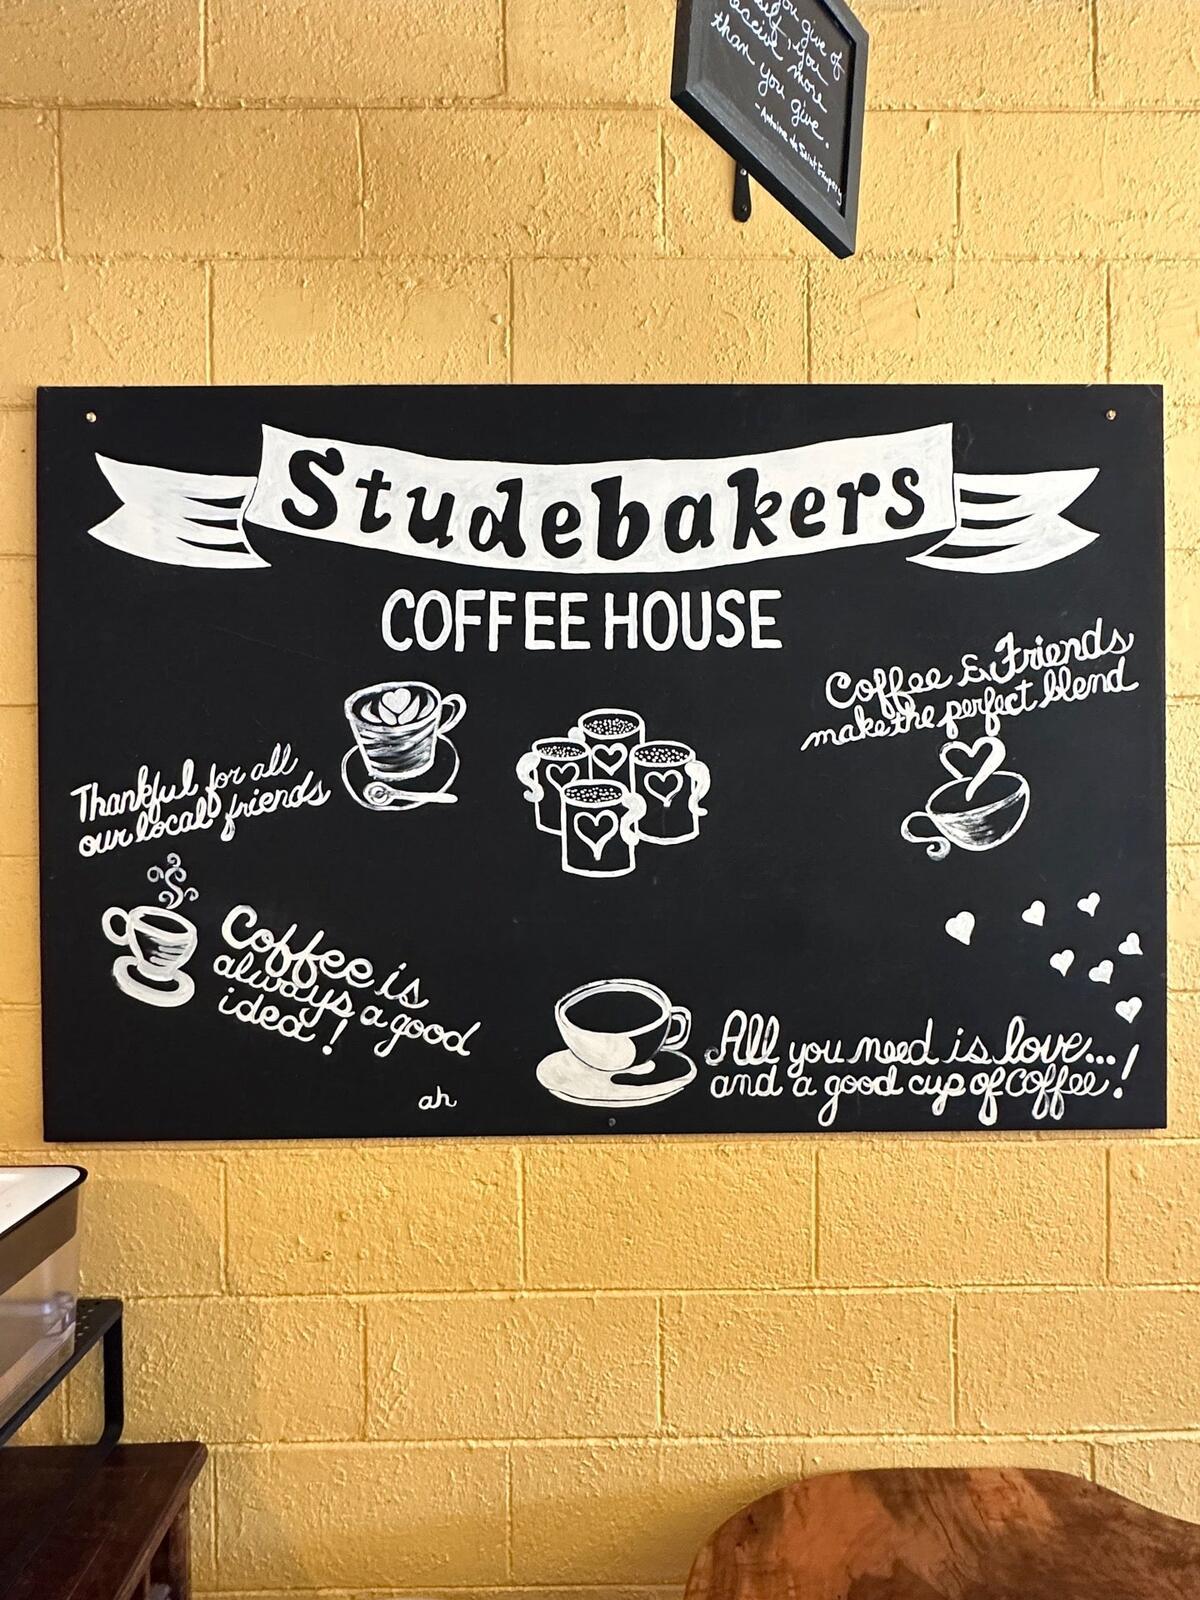 you give of
you
receive more
than you give.
- Antoine de Saint Exupery
Studebakers
COFFEE HOUSE
Coffee & Friends
make the perfect blend
Thankful for all
our local friends
Coffee is
always a good
idea!
All you need is love...
and a good cup of coffee!
ah